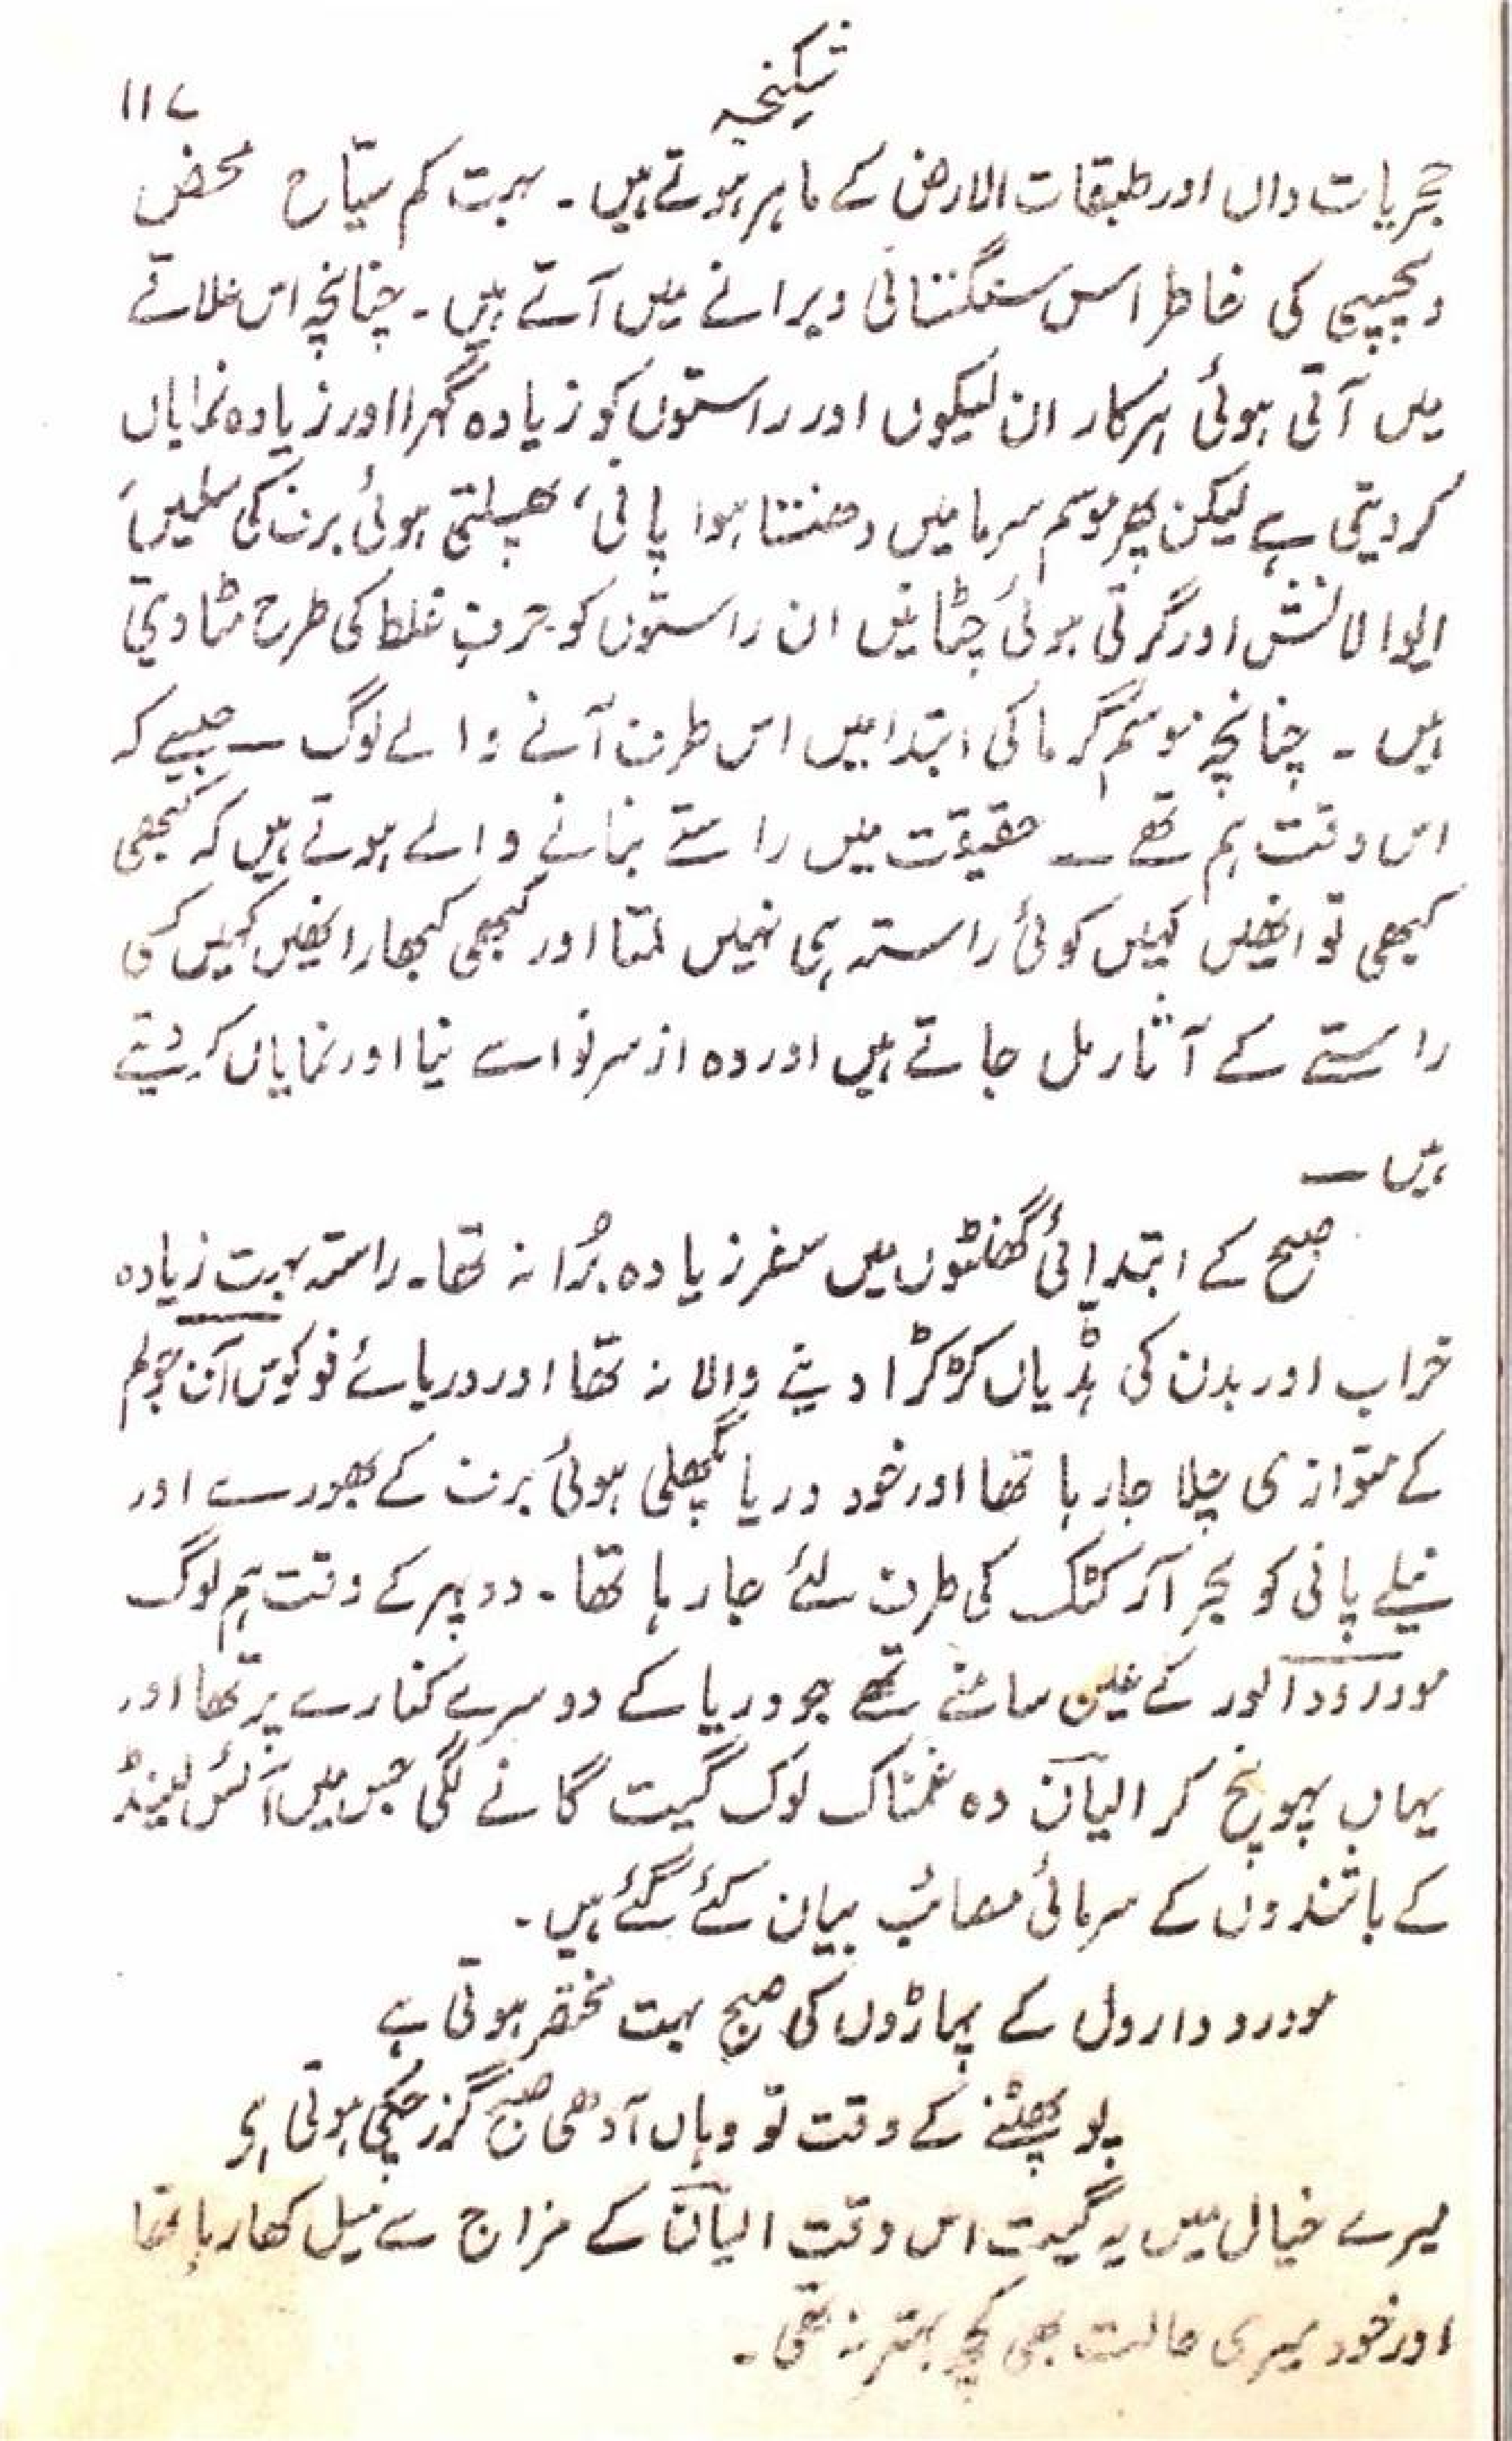 شکنجہ
۱۱۷
حجریات داں اور طبقات الارض کے ماہر ہوتے ہیں ۔ بہت کم سیّاح محض
دلچسپی کی خاطر اس سنگستانی ویرانے میں آتے ہیں ۔ چنانچہ اس علاقے
میں آتی ہوئی ہر کار ان لیکوں اور راستوں کو زیادہ گہرا اور زیادہ نمایاں
کر دیتی ہے لیکن پھر موسم سرما میں دھنستا ہوا پانی ، پھسلتی ہوئی برف کی سلیں
ایوالانش اور گرتی ہوئی چٹانیں ان راستوں کو حرفِ غلط کی طرح مٹا دیتی
ہیں ۔ چنانچہ موسم گرما کی ابتدا میں اس طرف آنے والے لوگ — جیسے کہ
اس وقت ہم تھے — حقیقت میں راستے بنانے والے ہوتے ہیں کہ کبھی
کبھی تو انھیں کہیں کوئی راستہ ہی نہیں ملتا اور کبھی کبھار انھیں کہیں کسی
راستے کے آثار مل جاتے ہیں اور وہ از سر نو اسے نیا اور نمایاں کر دیتے
ہیں —
صبح کے ابتدائی گھنٹوں میں سفر زیادہ بُرا نہ تھا ۔ راستہ بہت زیادہ
خراب اور بدن کی ہڈیاں کڑکڑا دینے والا نہ تھا اور دریائے فوکوس آن جولم
کے متوازی چلا جا رہا تھا اور خود دریا پگھلی ہوئی برف کے بھورے اور
نیلے پانی کو بحر آرکٹک کی طرف لئے جا رہا تھا ۔ دوپہر کے وقت ہم لوگ
مودرودالور کے عین سامنے تھے جو دریا کے دوسرے کنارے پر تھا اور
یہاں پہونچ کر الیآن وہ غمناک لوک گیت گانے لگی جس میں آئس لینڈ
کے باشندوں کے سرمائی مصائب بیان کئے گئے ہیں ۔
مودرودارول کے پہاڑوں کی صبح بہت مختصر ہوتی ہے
پو پھٹنے کے وقت تو وہاں آدھی صبح گزر چکی ہوتی ہے
میرے خیال میں یہ گیت اس وقت الیآن کے مزاج سے میل کھا رہا تھا
اور خود میری حالت بھی کچھ بہتر نہ تھی ۔